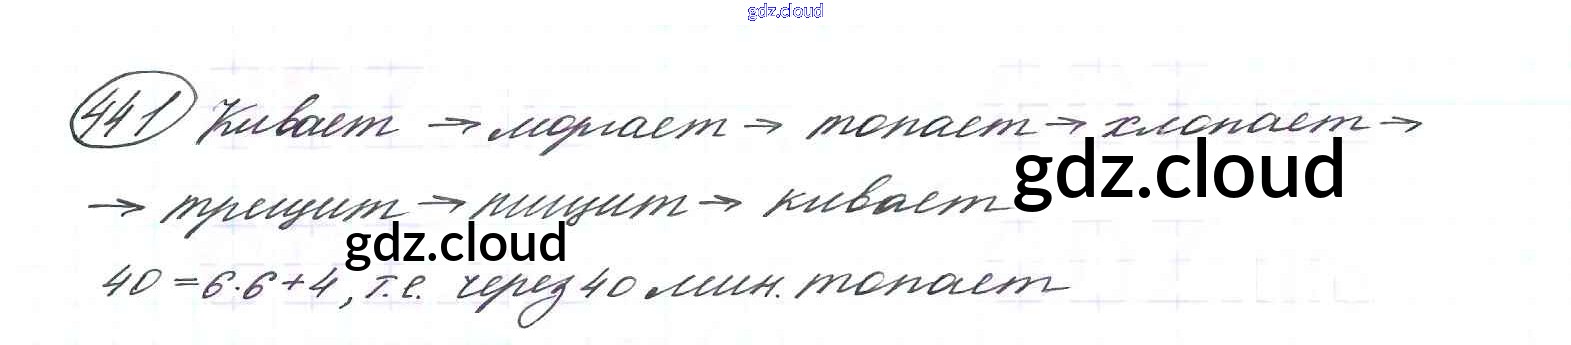 gdz.cloud
441 Кивает → моргает → топает → хлопает →
→ трещит → пищит → кивает
gdz.cloud
gdz.cloud
40 = 6·6+4, т.е. через 40 мин. топает